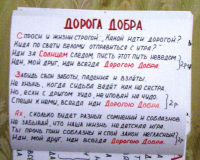 ДОРОГА ДОБРА
Спроси у жизни строгой, какой идти дорогой?
Куда по свету белому отправиться с утра?
Иди за Солнцем следом, пусть этот путь неведом,
Иди, мой друг, иди всегда Дорогою Добра. 2р
Забудь свои заботы, падения и взлёты,
Не хнычь, когда судьба ведёт как не сестра,
Но если с другом худо, не уповай на чудо,
Спеши к нему, всегда иди Дорогою Добра. 2р
Ах, сколько будет разных сомнений и соблазнов,
Не забывай, что наша жизнь, не детская игра.
Ты прочь гони соблазны, закон негласный:
Иди, мой друг, иди всегда Дорогою Добра. 2р